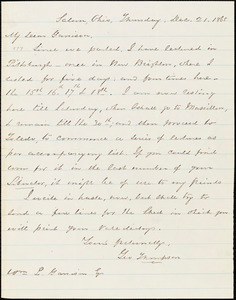 Salem, Ohio, Thursday, Dec. 21. 1865
My Dear Garrison,
Since we parted, I have lectured in
Pittsburgh – once in New Brighton, where I
rested for five days, and four times here –
the 15th 16th 17th & 18th. I am now resting
here till Saturday, then I shall go to Massillon,
& remain till the 30th, and then proceed to
Toledo, to commence a series of lectures as
per accompanying list. If you could find
room for it in the last number of your
Liberator, it might be of use to my friends
I write in haste, now, but shall try to
send a few lines for the Sheet in which you
will print your Valedictory.
Yours Affectionately,
Geo Thompson
Wm L Garrison Esq